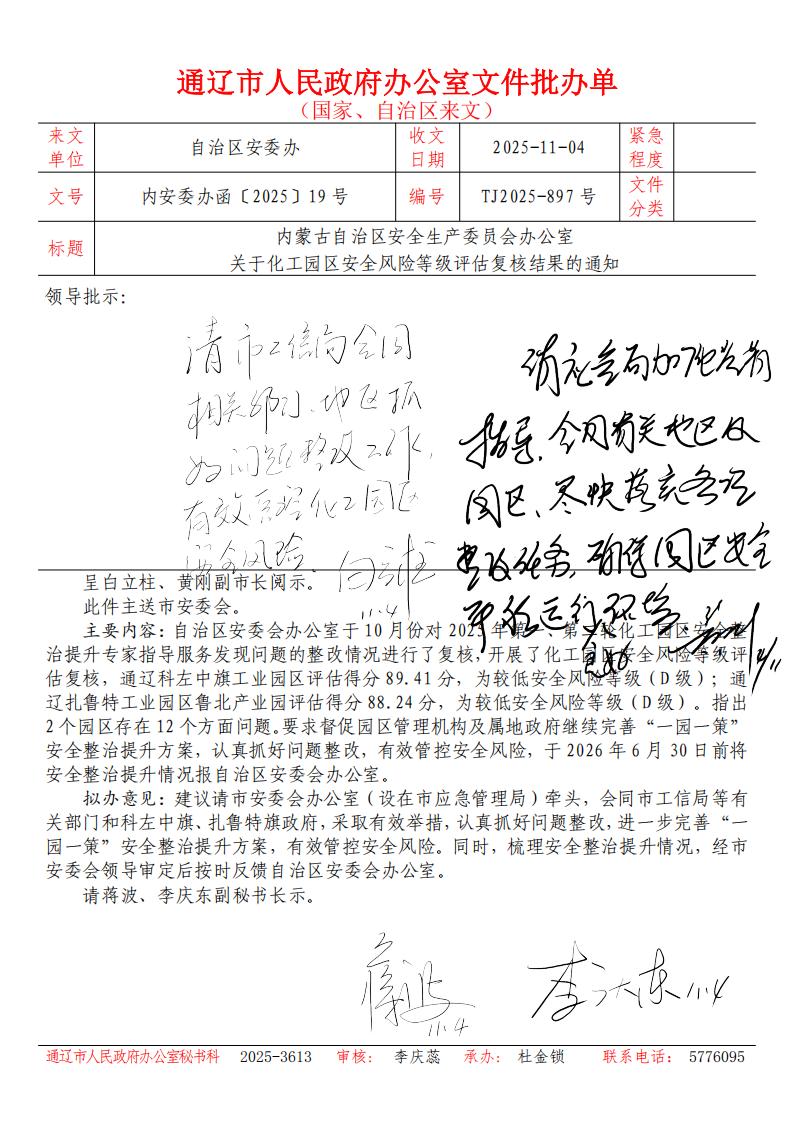 通辽市人民政府办公室文件批办单
（国家、自治区来文）
来文单位 自治区安委办 收文日期 2025-11-04 紧急程度
文号 内安委办函〔2025〕19号 编号 TJ2025-897号 文件分类
标题 内蒙古自治区安全生产委员会办公室
关于化工园区安全风险等级评估复核结果的通知
领导批示：
请市工信局会同
相关部门、地区抓
好问题整改工作，
有效管控化工园区
安全风险。
11.4
指导，会同有关地区及
园区、尽快落实各项
整改任务，确保园区安全
呈白立柱、黄刚副市长阅示。
此件主送市安委会。
主要内容：自治区安委会办公室于10月份对2025年第一、第二轮化工园区安全整
治提升专家指导服务发现问题的整改情况进行了复核，开展了化工园区安全风险等级评
估复核，通辽科左中旗工业园区评估得分89.41分，为较低安全风险等级（D级）；通
辽扎鲁特工业园区鲁北产业园评估得分88.24分，为较低安全风险等级（D级）。指出
2个园区存在12个方面问题。要求督促园区管理机构及属地政府继续完善“一园一策”
安全整治提升方案，认真抓好问题整改，有效管控安全风险，于2026年6月30日前将
安全整治提升情况报自治区安委会办公室。
拟办意见：建议请市安委会办公室（设在市应急管理局）牵头，会同市工信局等有
关部门和科左中旗、扎鲁特旗政府，采取有效举措，认真抓好问题整改，进一步完善“一
园一策”安全整治提升方案，有效管控安全风险。同时，梳理安全整治提升情况，经市
安委会领导审定后按时反馈自治区安委会办公室。
请蒋波、李庆东副秘书长示。
蒋波 11.4
李庆东 11.4
通辽市人民政府办公室秘书科 2025-3613 审核： 李庆蕊 承办： 杜金锁 联系电话： 5776095